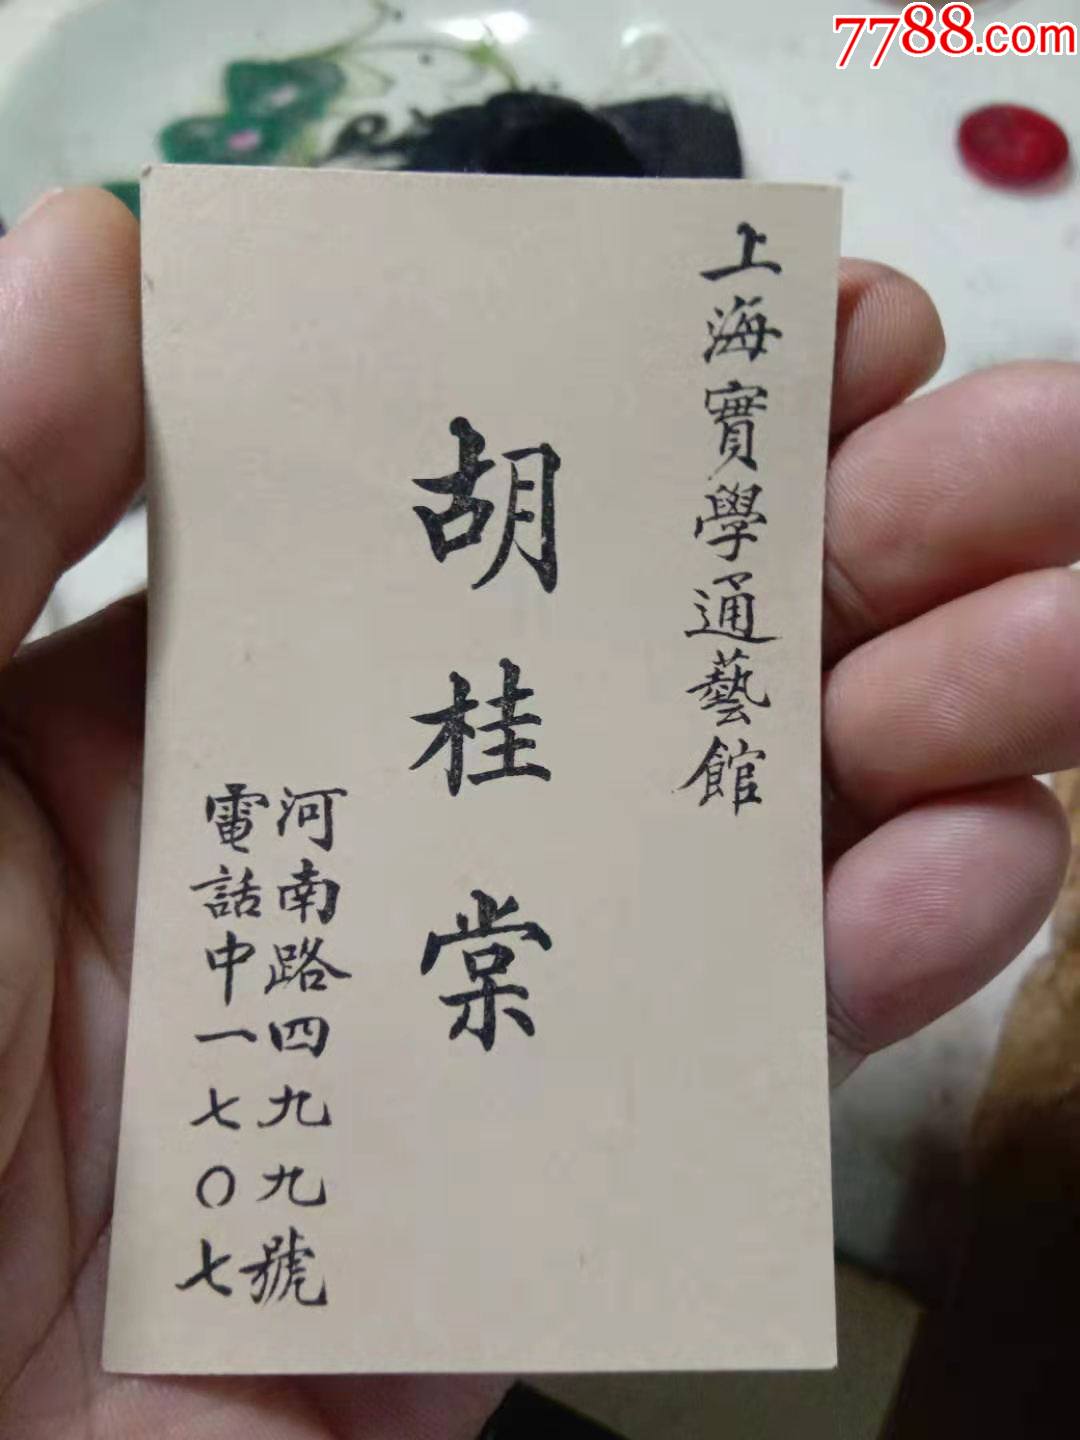 7788.com
上海實學通藝館
胡桂棠
河南路四九九號
電話中一七〇七